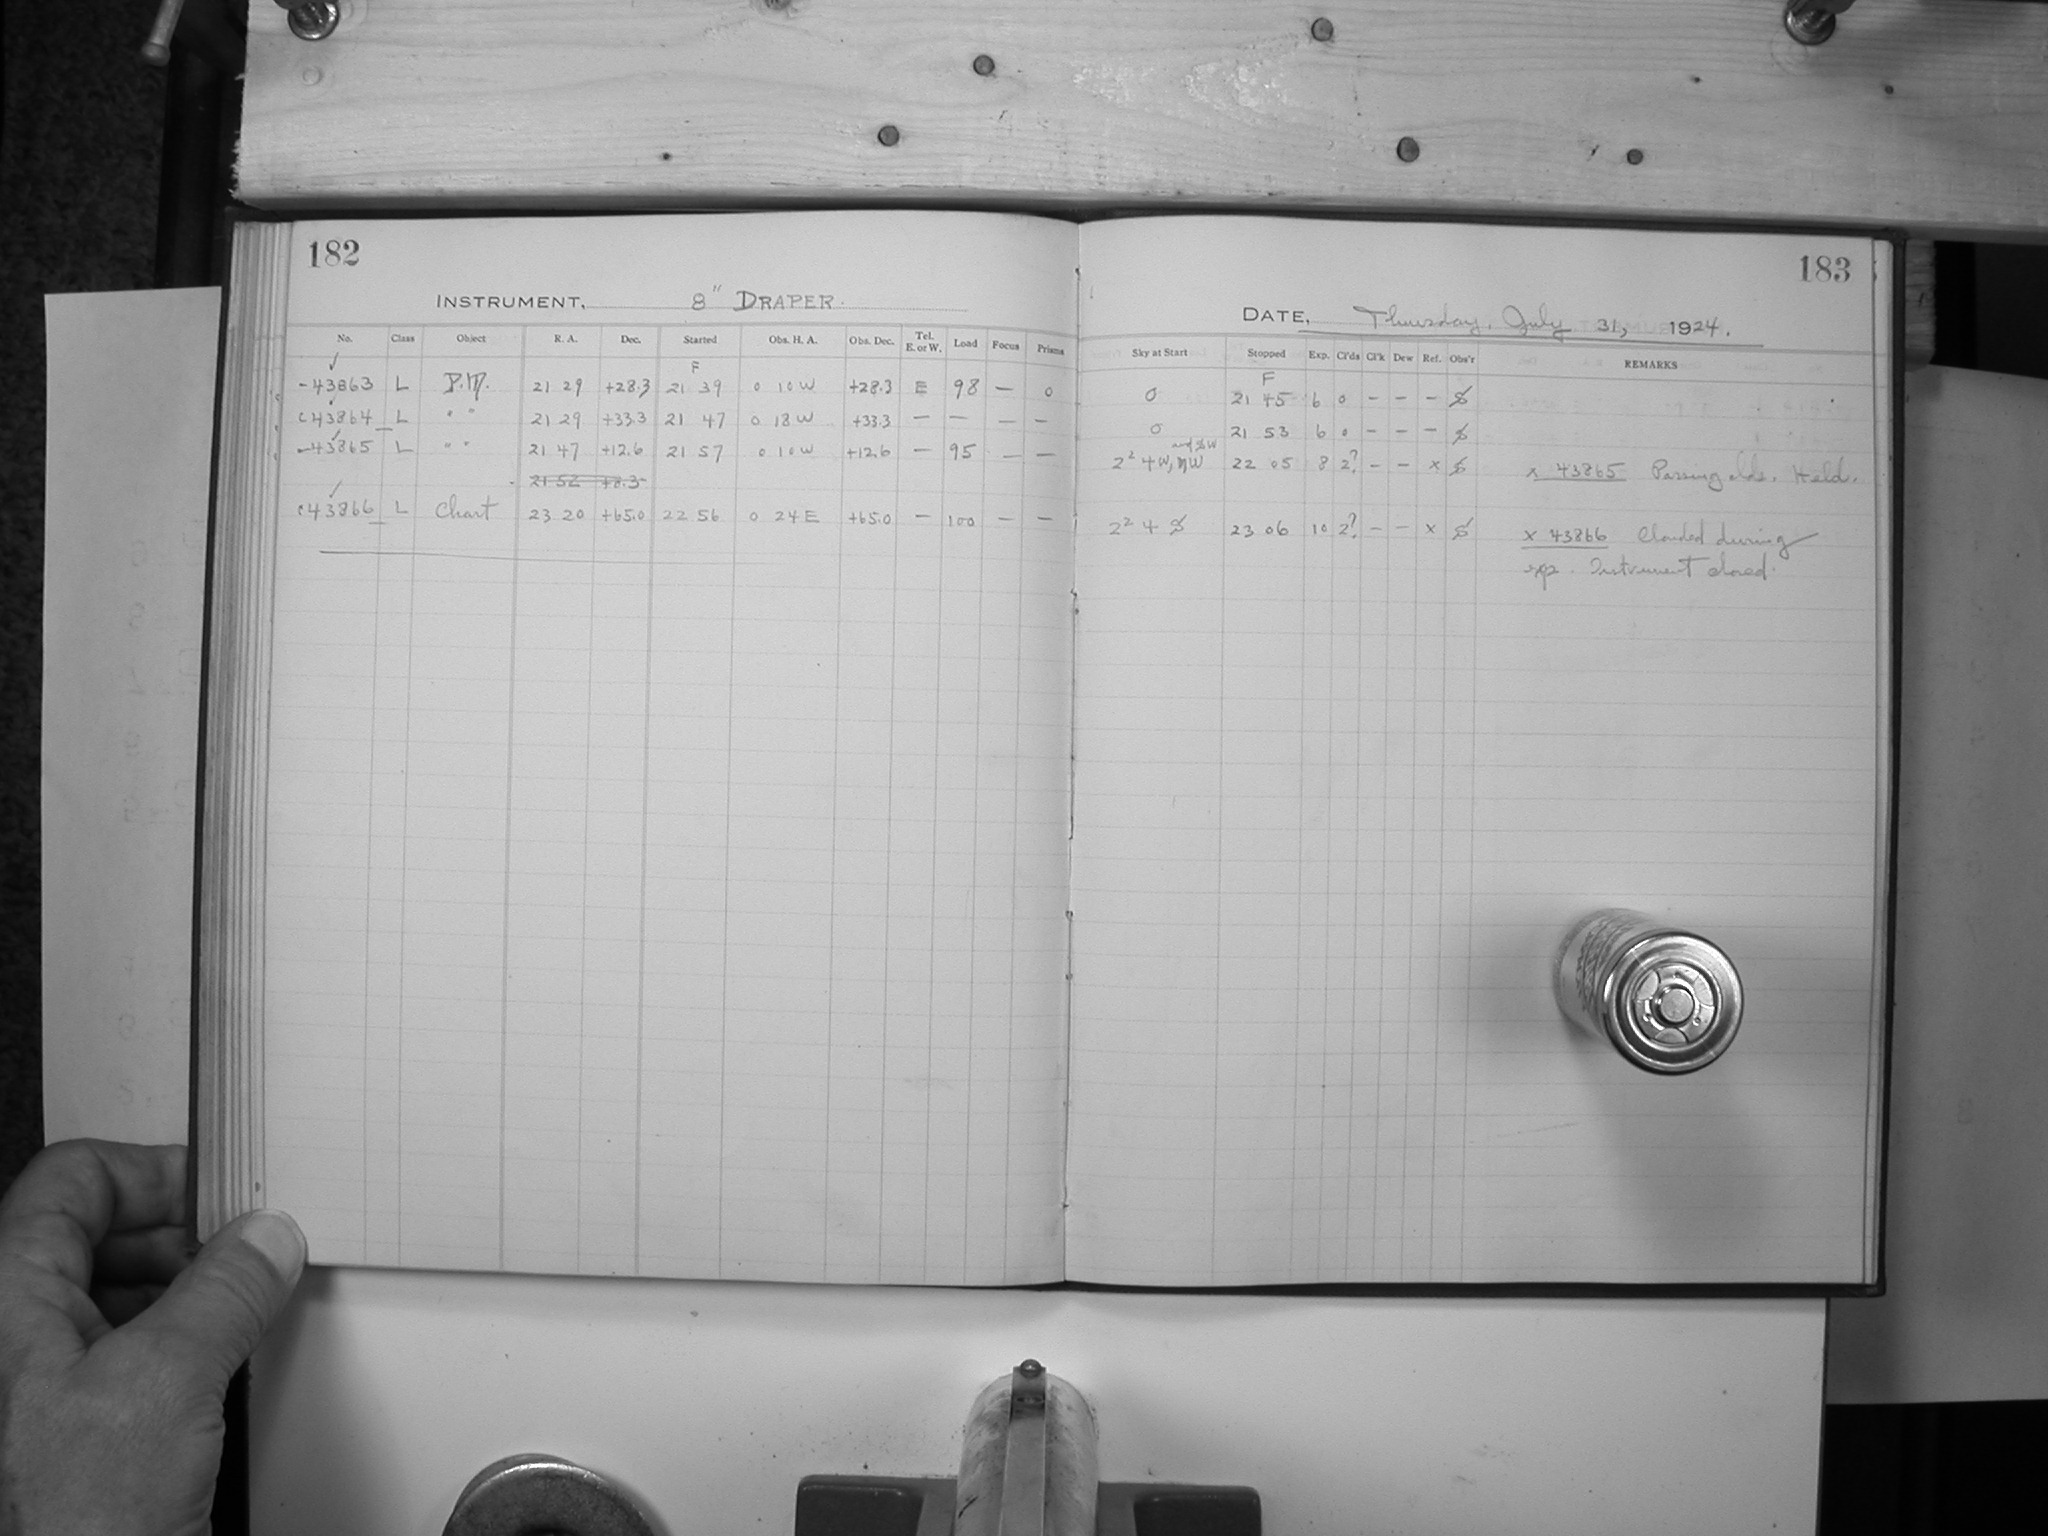 182
INSTRUMENT, 8" DRAPER.
No. Class Object R. A. Dec. Started Obs. H. A. Obs. Dec. Tel. E. or W. Load Focus Prisms
F
-43863 L P.M. 21 29 +28.3 21 39 0 10 W +28.3 E 98 — 0
43864 L " " 21 29 +33.3 21 47 0 18 W +33.3 — — — —
-43865 L " " 21 47 +12.6 21 57 0 10 W +12.6 — 95 — —
21 52 +8.3
43866 L Chart 23 20 +65.0 22 56 0 24 E +65.0 — 100 — —
183
DATE, Thursday, July 31, 1924.
Sky at Start Stopped Exp. Cl'ds Cl'k Dew Ref. Obs'r REMARKS
F
0 21 45 6 0 — — —
0 21 53 6 0 — — —
2² 4 W, 22 05 8 2? — — x x 43865 Passing clds. Held.
2² 4 23 06 10 2? — — x x 43866 Clouded during
exp. Instrument closed.